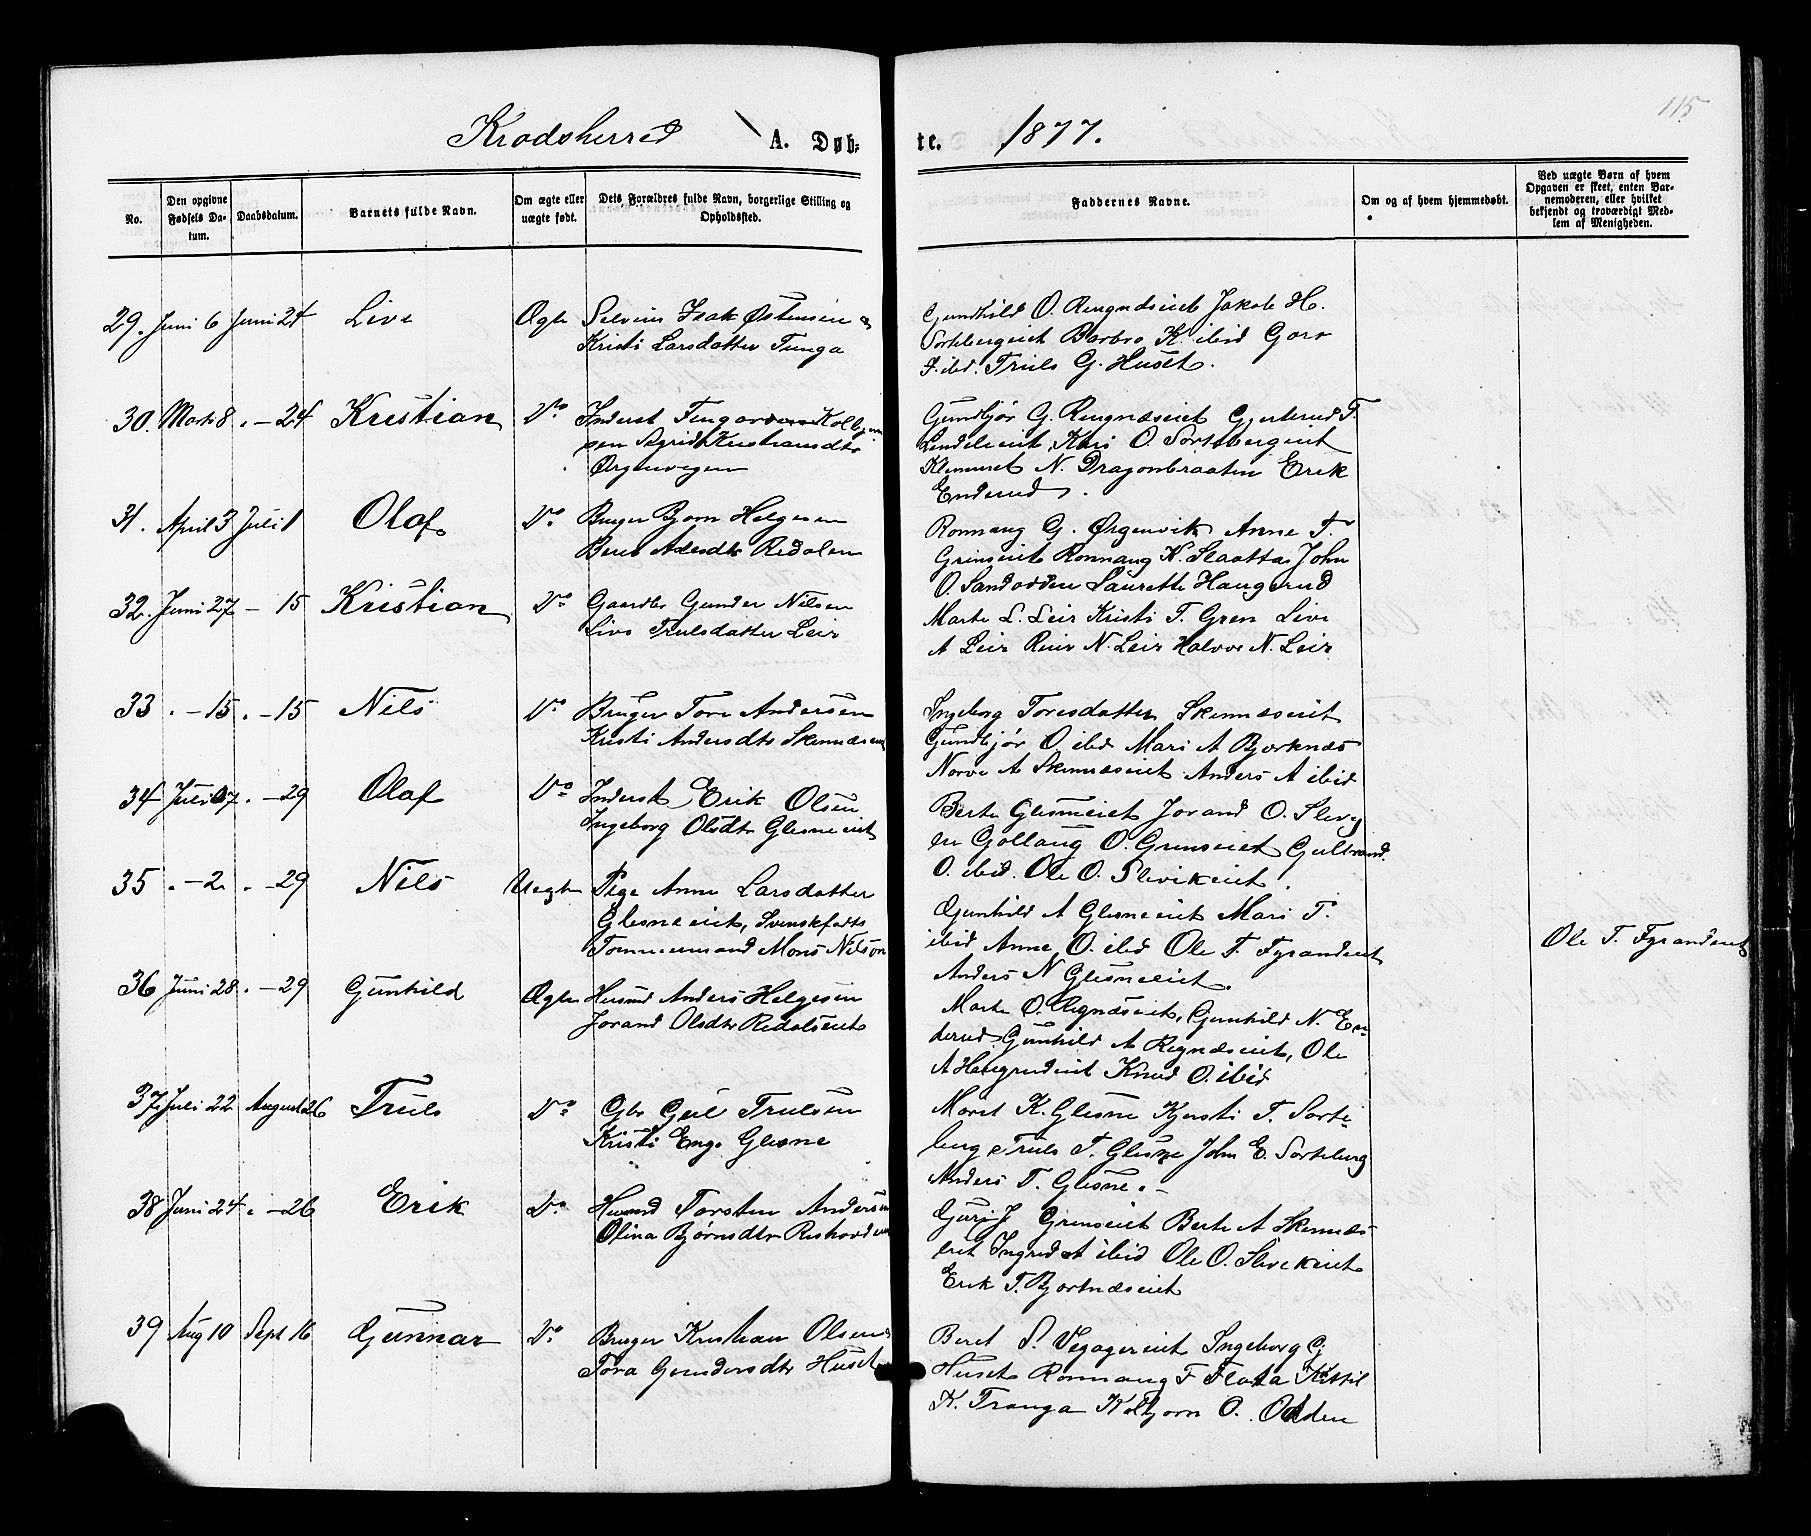 115
Krodsherred A. Døb-te. 1877.
No.
Den opgivne Fødsels Datum.
Daabsdatum.
Barnets fulde Navn.
Om ægte eller uægte født.
Dets Forældres fulde Navn, borgerlige Stilling og Opholdssted.
Faddernes Navne.
Om og af hvem hjemmedøbt.
Ved uægte Børn af hvem Opgaven er skeet, enten Barnemoderen, eller hvilket bekjendt og troværdigt Medlem af Menigheden.
29. Juni 6 Juni 24 Live Ægte Selveier Isak Østensen
Kristi Larsdatter Tunga
Gunhild O. Rengnæseiet Jakob H.
Sortebergeiet Barbro K. ibid Goro
ibid. Truls G. Huset.
30. Marts 8 . - 24 Kristian Do Inderst
Kristiansdtr
Ørgenvigen
Gundbjør G. Rengnæseiet F.
Kari O. Sortebergeiet
N. Dragonbraaten Erik
Enderud.
31. April 3 Juli 1 Olaf Do Bruger Bjørn Helgesen
Beret Redalen
Ronnaug G. Ørgenvik Anne T.
Grinseiet Ronnaug K. Slaatta John
O. Sandodden Laurette Haugerud
32. Juni 27 - 15 Kristian Do Gaardbr Gunder Nilsen
Live Trulsdatter Leir
Marte L. Leir Kristi T. Gren Live
A Leir N. Leir Halvor N. Leir
33 . - 15 . - 15 Nils Do Bruger Tore Andersen
Kristi Andersdtr
Ingeborg Toresdatter Skinnæseiet
Gundbjør O. ibid Mari A Bjørknæs
A Skinnæseiet Anders A ibid
34 Juli . - 29 Olaf Do Inderst Erik Olsen
Ingeborg Olsdtr Glesneeiet
Berte Glesneeiet Jorand O.
Gollaug O. Grinseiet Gulbrand
O. ibid. Ole O. Slevikeiet.
35 . - 2 . - 29 Nils Uægte Pige Anne Larsdatter
Glesneeiet, Svenskfødte
Tømmermand Mons Nilson
Gunhild A Glesneeiet Mari T.
ibid Anne O. ibid Ole T. Fyrandeiet
Anders N Glesneeiet.
Ole T. Fyrandeiet
36 Juni 28 . - 29 Gunhild Ægte Husmd Anders Helgesen
Jorand Olsdtr Redalseiet
Marte O. Regnæseiet, Gunhild N. En-
derud. Gunhild A Regnæseiet, Ole
A Haugrudeiet Knud O. ibid
37 Juli 22 August 26 Truls Do Gbr Trulsen
Kristi Glesne
Maret K. Glesne Kjersti T. Sorte-
berg Truls T. Glesne John E. Sorteberg
Anders T. Glesne. -
38 Juni 24 . - 26 Erik Do Husmd Torsten Andersen
Olina Bjørnsdtr
Guri J Grinseiet Berte A Skinnæs
eiet Ingrid A ibid Ole O. Slevikeiet
Erik T. Bjørknæseiet
39 Aug 10 Sept 16 Gunnar Do Bruger Kristian Olsen
Tora Gundersdtr Huset
Beret S. Ingeborg G
Huset Ronnaug F Flata Kittil
K. Tranga Kolbjørn O. Odden